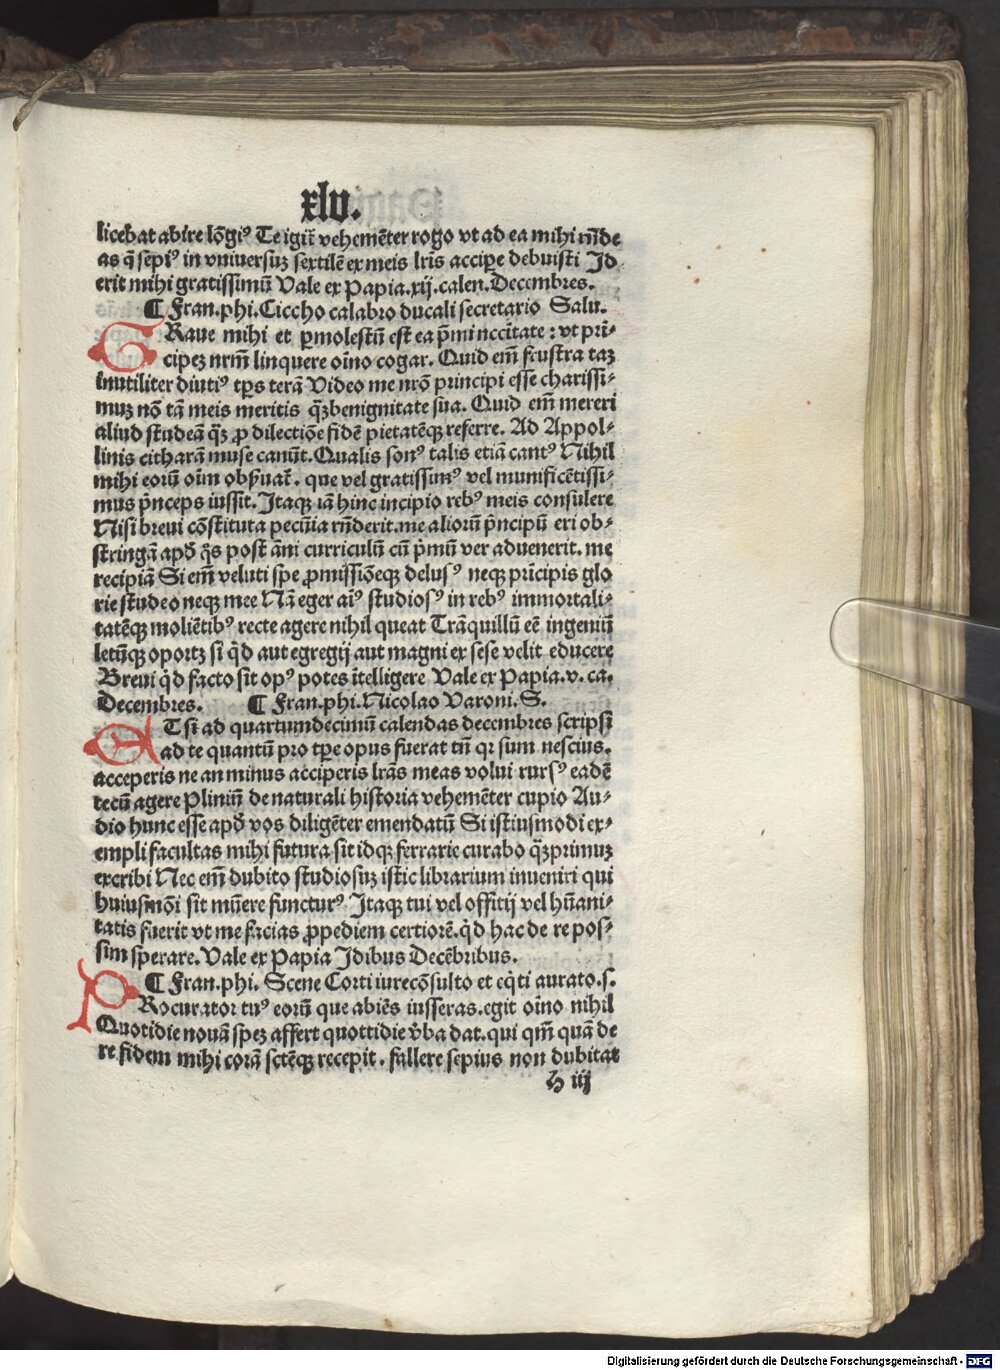 xlv.
licebat abire lōgiꝰ Te igit̄ vehemēter rogo vt ad ea mihi rn̄de
as q̄ sepiꝰ in vniuersuꝫ sextilē ex meis lr̄is accipe debuisti Id
erit mihi gratissimū Vale ex Papia.xij.calen.Decembres.
¶ Fran.phi.Ciccho calabro ducali secretario Salu.
GRaue mihi et ꝑmolestū est ea p̄mi nccītate : vt prī⸗
cipeꝫ nr̄m linquere oīno cogar. Quid em̄ frustra taꝫ
inutiliter diutiꝰ tp̄s terā Video me nr̄o principi esse charissi⸗
muꝫ nō tā meis meritis q̄ꝫ benignitate sua. Quid em̄ mereri
aliud studeā q̄ꝫ ꝓ dilectiōe fidē pietatēqꝫ referre. Ad Appol⸗
linis citharā muse canūt. Qualis sonꝰ talis etiā cantꝰ Nihil
mihi eorū oīm obẜuat̄. que vel gratissimꝰ vel munificētissi⸗
mus p̄nceps iussit. Itaqꝫ iā hinc incipio rebꝰ meis consulere
Nisi breui cōstituta pecūia rn̄derit. me aliorū p̄ncipū eri ob⸗
stringā apd̄ q̄s post āni curriculū cū p̄mū ver aduenerit. me
recipiā Si em̄ veluti spe ꝓmissiōeqꝫ delusꝰ neqꝫ prīcipis glo
rie studeo neqꝫ mee Nā eger aīꝰ studiosꝰ in rebꝰ immortali⸗
tatēqꝫ moliētibꝰ recte agere nihil queat Trāquillū eē ingeniū
letūqꝫ oportꝫ si q̄d aut egregij aut magni ex sese velit educere
Breui q̄d facto sit opꝰ potes ītelligere Vale ex Papia.v. ca.
Decembres. ¶ Fran.phi.Nicolao Varoni.S.
ETsi ad quartumdecimū calendas decembres scripsi
ad te quantū pro tp̄e opus fuerat tn̄ qr sum nescius.
acceperis ne an minus acciperis lr̄as meas volui rursꝰ eadē
tecū agere Pliniū de naturali historia vehemēter cupio Au⸗
dio hunc esse apd̄ vos diligēter emendatū Si istiusmodi ex⸗
empli facultas mihi futura sit idqꝫ ferrarie curabo q̄ꝫprimuꝫ
excribi Nec em̄ dubito studiosuꝫ istic librarium inueniri qui
huiusmōi sit mūere functurꝰ Itaqꝫ tui vel offitij vel hūani⸗
tatis fuerit vt me facias ꝓpediem certiorē. q̄d hac de re pos⸗
sim sperare. Vale ex Papia Idibus Decēbribus.
¶ Fran.phi. Scene Corti iurecōsulto et eq̄ti aurato.s.
PRocurator tuꝰ eorū que abiēs iusseras. egit oīno nihil
Quotidie nouā speꝫ affert quottidie v̄ba dat. qui qm̄ quā de
re fidem mihi corā sctēqꝫ recepit. fallere sepius non dubitat
h iij
Digitalisierung gefördert durch die Deutsche Forschungsgemeinschaft - DFG